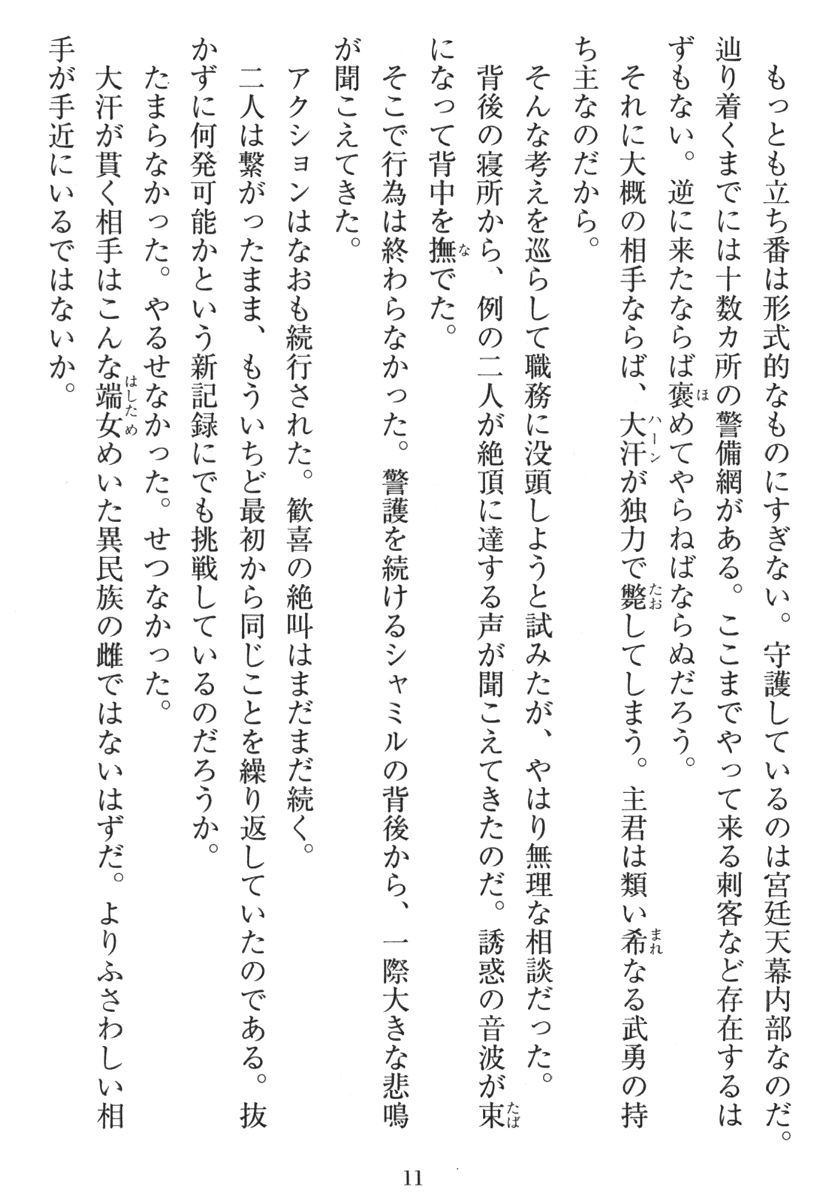 もっとも立ち番は形式的なものにすぎない。守護しているのは宮廷天幕内部なのだ。
辿り着くまでには十数カ所の警備網がある。ここまでやって来る刺客など存在するは
ずもない。逆に来たならば褒めてやらねばならぬだろう。
それに大概の相手ならば、大汗が独力で斃してしまう。主君は類い希なる武勇の持
ち主なのだから。
そんな考えを巡らして職務に没頭しようと試みたが、やはり無理な相談だった。
背後の寝所から、例の二人が絶頂に達する声が聞こえてきたのだ。誘惑の音波が束
になって背中を撫でた。
そこで行為は終わらなかった。警護を続けるシャミルの背後から、一際大きな悲鳴
が聞こえてきた。
アクションはなおも続行された。歓喜の絶叫はまだまだ続く。
二人は繋がったまま、もういちど最初から同じことを繰り返していたのである。抜
かずに何発可能かという新記録にでも挑戦しているのだろうか。
たまらなかった。やるせなかった。せつなかった。
大汗が貫く相手はこんな端女めいた異民族の雌ではないはずだ。よりふさわしい相
手が手近にいるではないか。
11